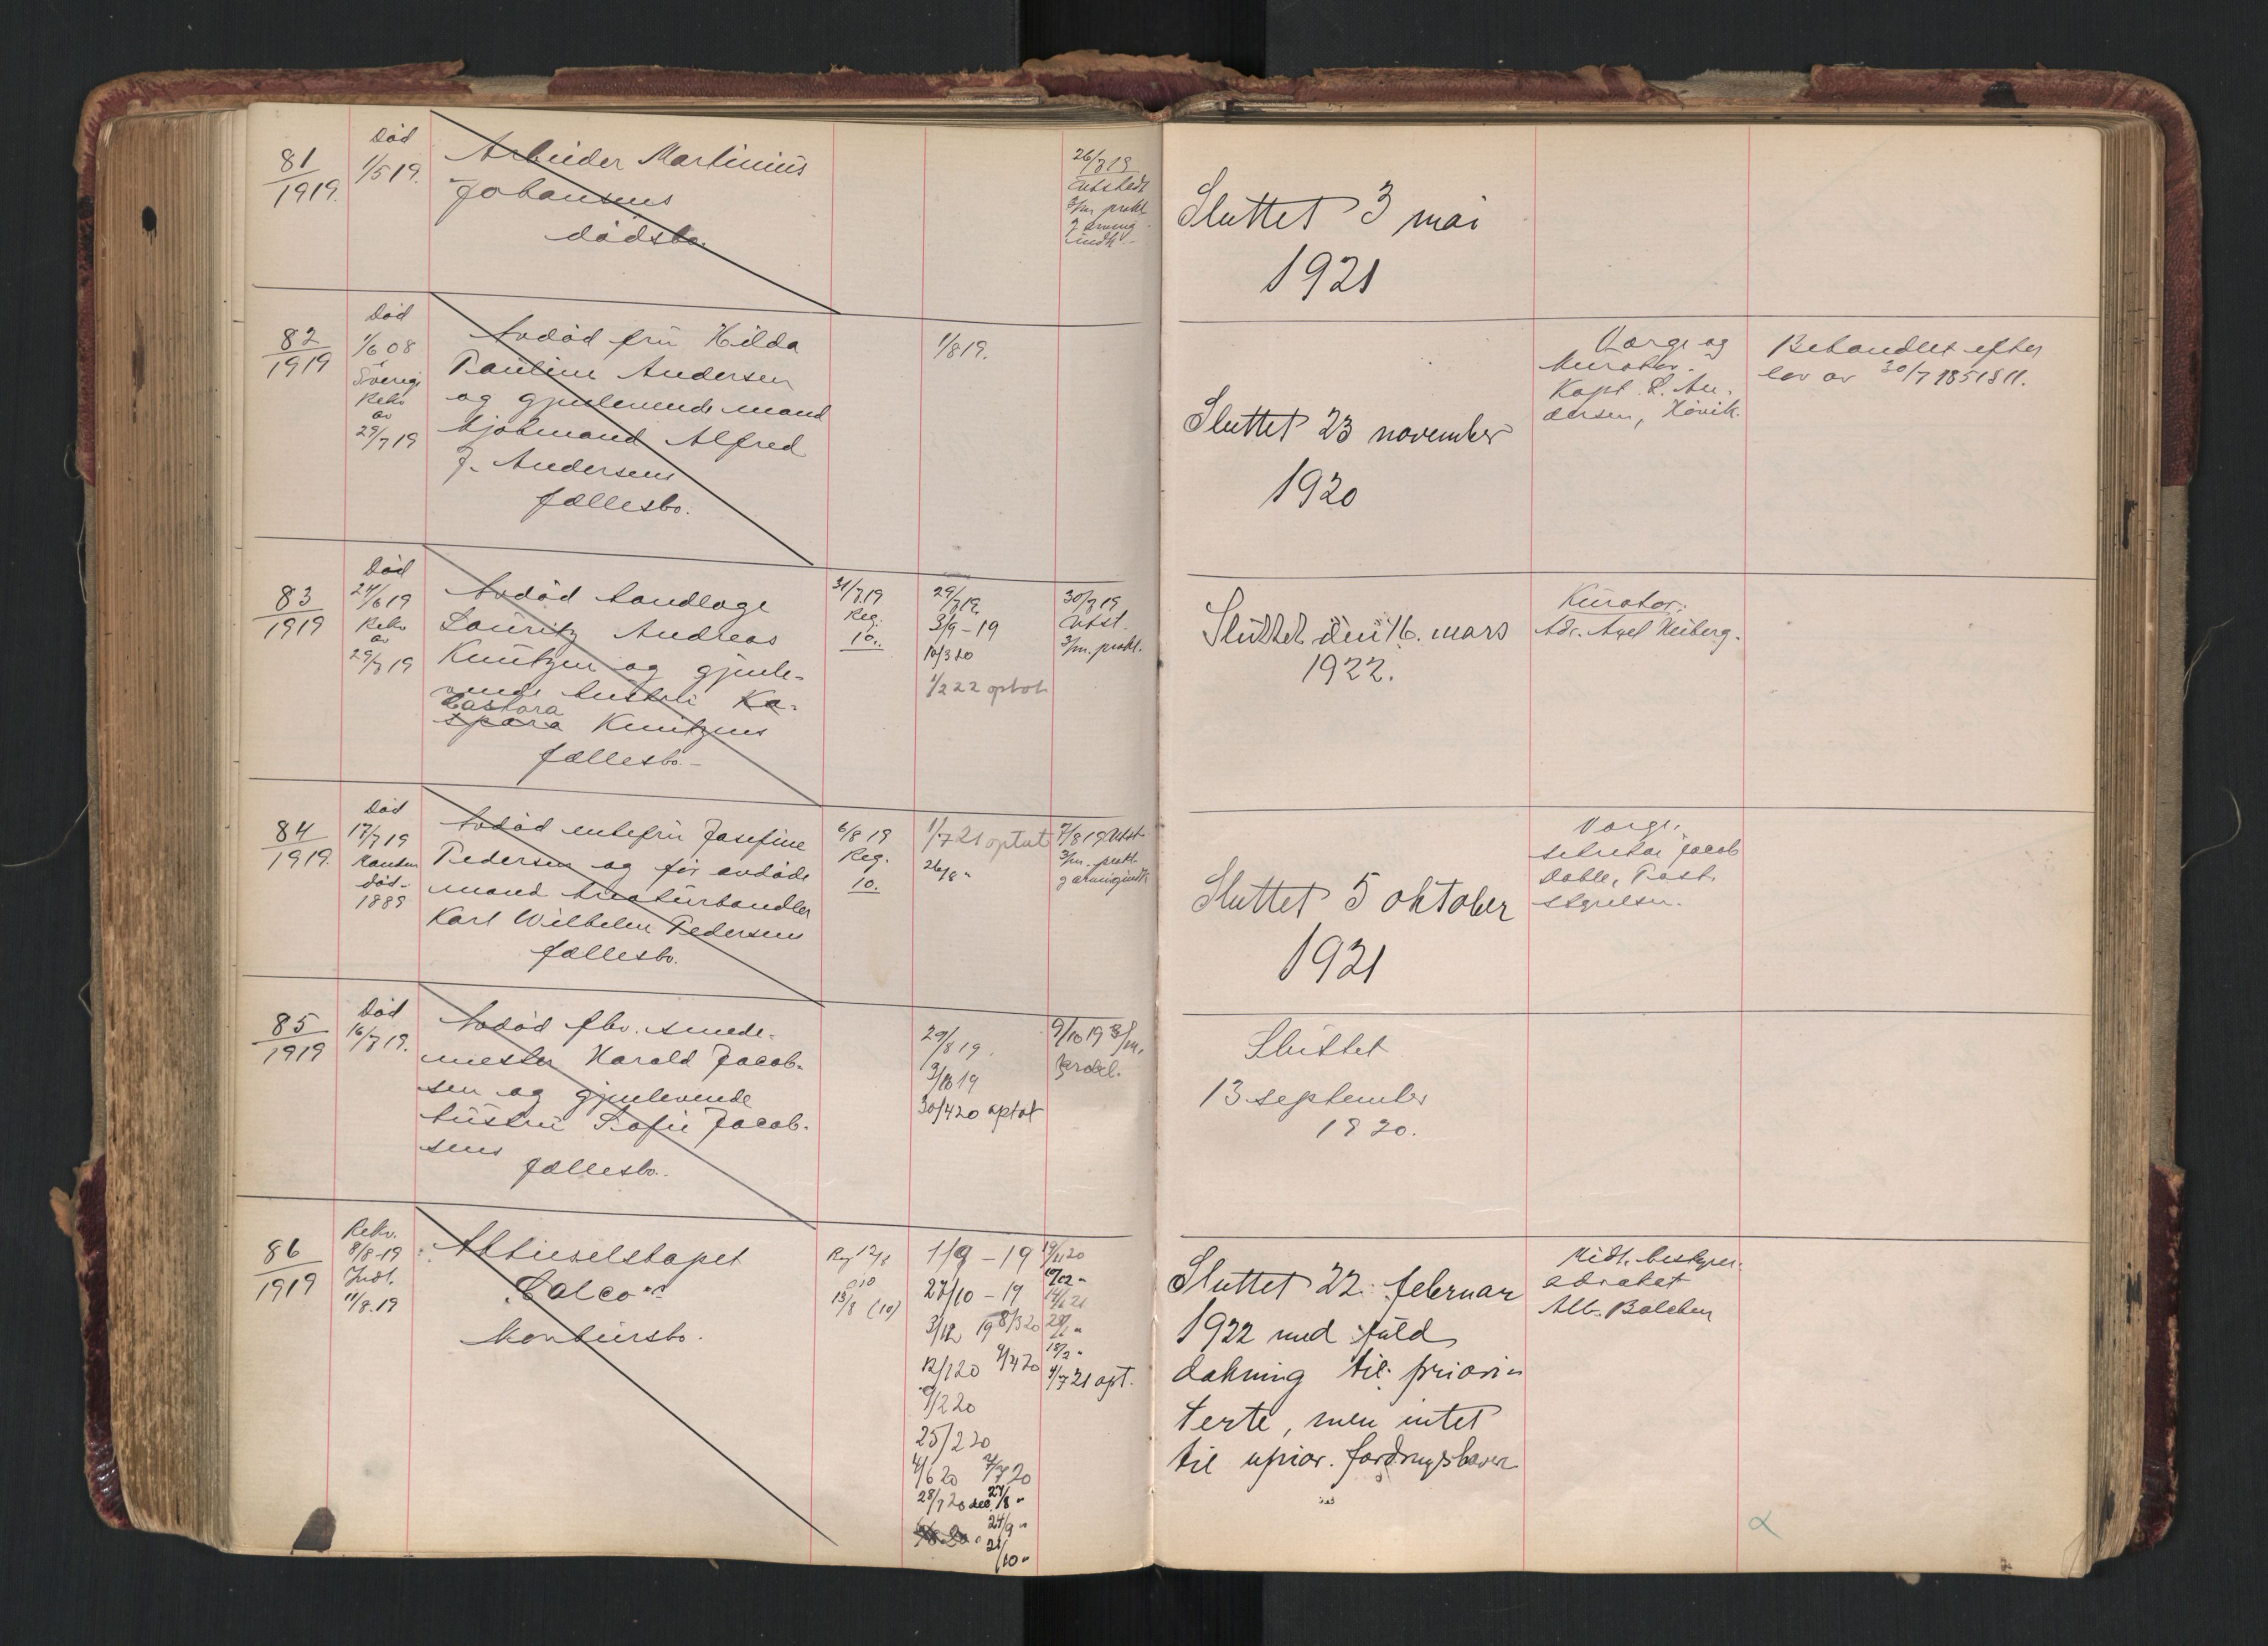 81
1919.
Død
1/5 19.
Arbeider Martinius
Johansens
dødsbo.
26/7 19
Utstedt
3/m prokl.
Sluttet 3 mai
1921
82
1919
Død
1/6 08
i
Sverige
Rekv
av
29/7 19
Avdød fru Hilda
Pauline Andersen
og gjenlevende mand
Alfred
J. Andersens
fællesbo.
1/8 19.
Sluttet 23 november
1920
Værge og
kurator:
Kapt. L. An-
dersen, Høvik.
Behandlet efter
lov av 30/7 1851 § 11.
83
1919
Død
24/6 19
Rekv
av
29/7 19
Avdød handlage
Lauritz Andreas
Knutzen og gjenle-
vende hustru Ka-
Castora
spara Knutzens
fællesbo.-
31/7 19
Reg.
10.
29/7 19.
3/9-19
10/3 20
1/2 22 optat
30/7 19
Utst.
3/m. prokl.
Sluttet den 16. mars
1922.
Kurator:
Adv. Axel Heiberg.
84
1919.
Død
17/7 19
Manden
død-
1889
Avdød enkefru Josefine
Pedersen og før avdøde
mand
Karl Wilhelm Pedersens
fællesbo.
6/8 19
Reg.
10.
1/7 21 optat
26/8 "
7/8 19 Utst.
3/m. prokl.
Sluttet 5 oktober
1921
Værge,
sekretær Jacob
Dahle, Post-
styrelsen.
85
1919
Død
16/7 19.
Avdød fhv. smede-
mester Harald Jacob-
sen og gjenlevende
hustru Sofie Jacob-
sens
fællesbo.-
29/8 19.
9/10 19
30/4 20 optat
9/10 19 3/m.
prokl.
Sluttet
13 september
1920.
86
1919
Rekv.
8/8-19
Indl.
11/8.19
Aktieselskapet
"Calco"s
konkursbo.
Reg 12/8
13/8 (10)
1/9 - 19
27/10 - 19
3/12 19 8/3 20
12/1 20 9/4 20
9/2 20
25/2 20
4/6 20 7/7 20
28/7 20 27/8 "
24/9 "
21/10 "
19/11 20
10/12 "
14/1 21
28/1 "
18/2 "
4/7 21 opt.
Sluttet 22. februar
1922 med fuld
dækning til priori-
terte, men intet
til uprior. fordringshaver
Midl. bestyrer
advokat
Alb. Balchen